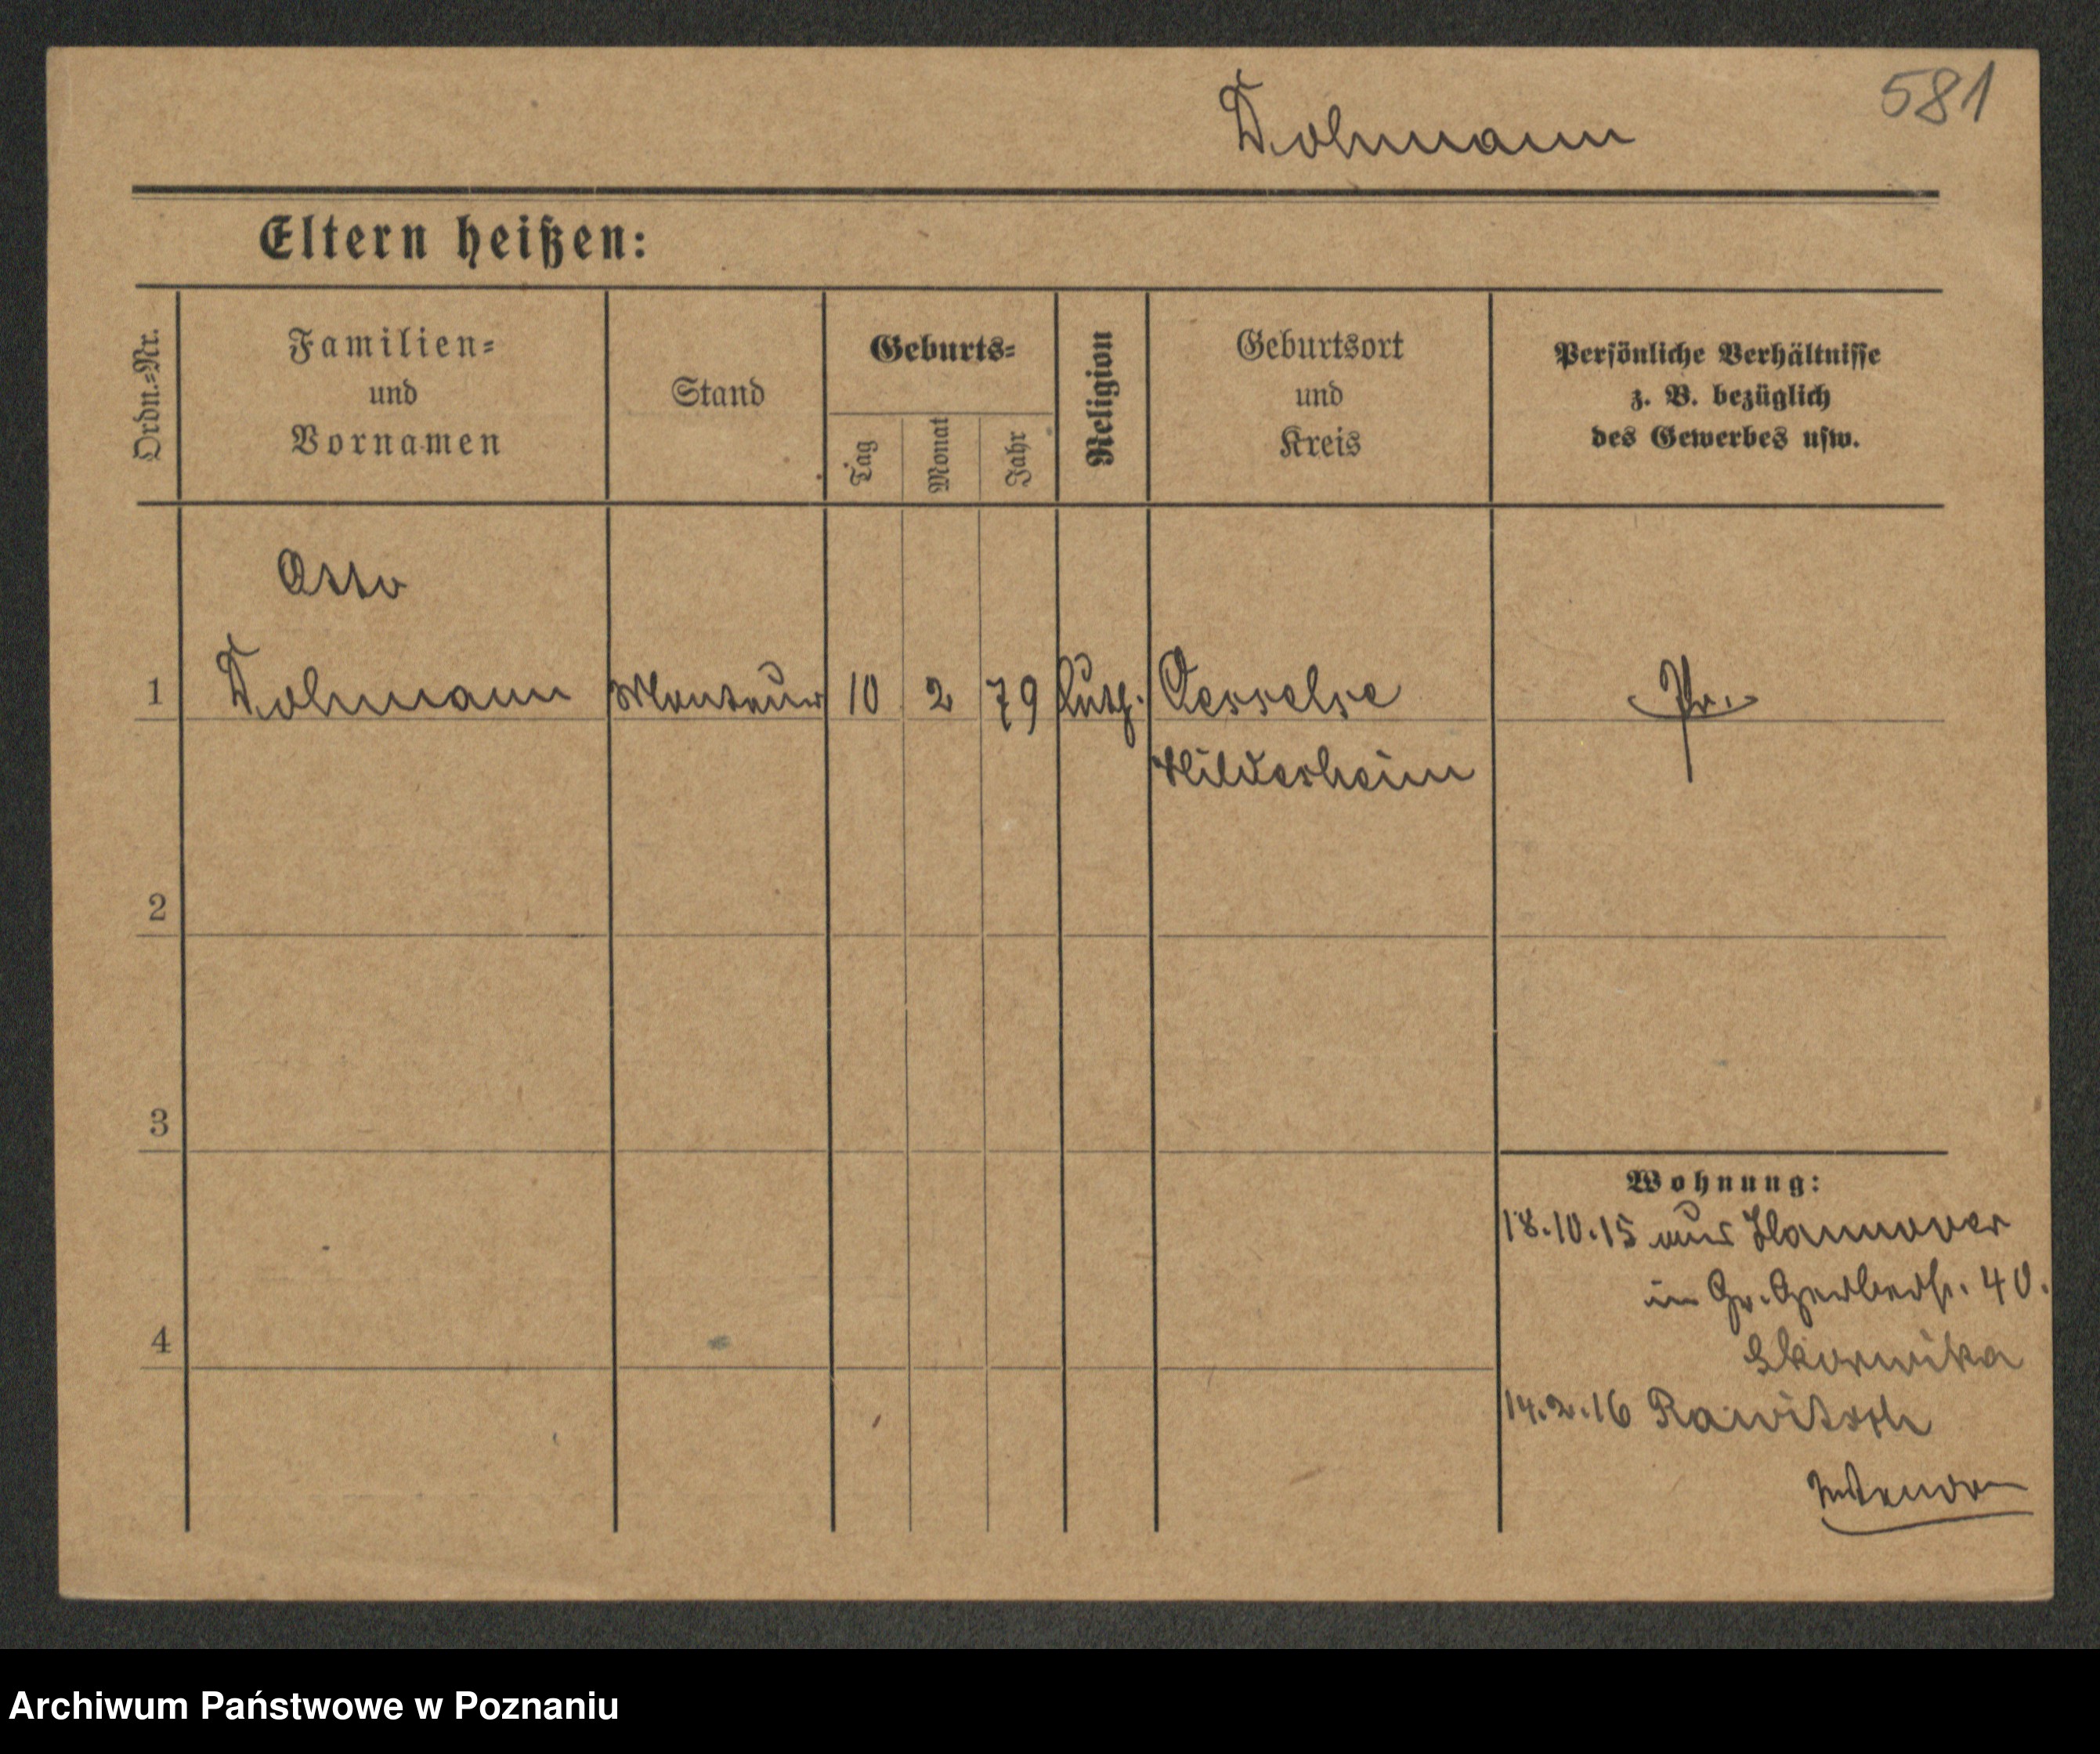 581
Dohmann
Eltern heißen:
Ordn.-Nr.
Familien-
und
Vornamen
Stand
Geburts-
Tag
Monat
Jahr
Religion
Geburtsort
und
Kreis
Persönliche Verhältnisse
z. B. bezüglich
des Gewerbes usw.
Otto
1 Dohmann Monteur 10 2 79 luth. Oesselse Pr.
Hildesheim
2
3
4
Wohnung:
18.10.15 aus Hannover
in Gr. Gerberstr. 40.
Skornika
14.2.16 Rawitsch
Archiwum Państwowe w Poznaniu